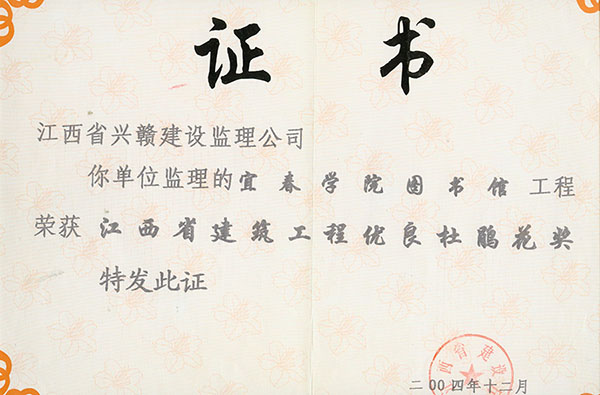 证书
江西省兴赣建设监理公司
你单位监理的宜春学院图书馆工程
荣获江西省建筑工程优良杜鹃花奖
特发此证
西省建设
二00四年十二月